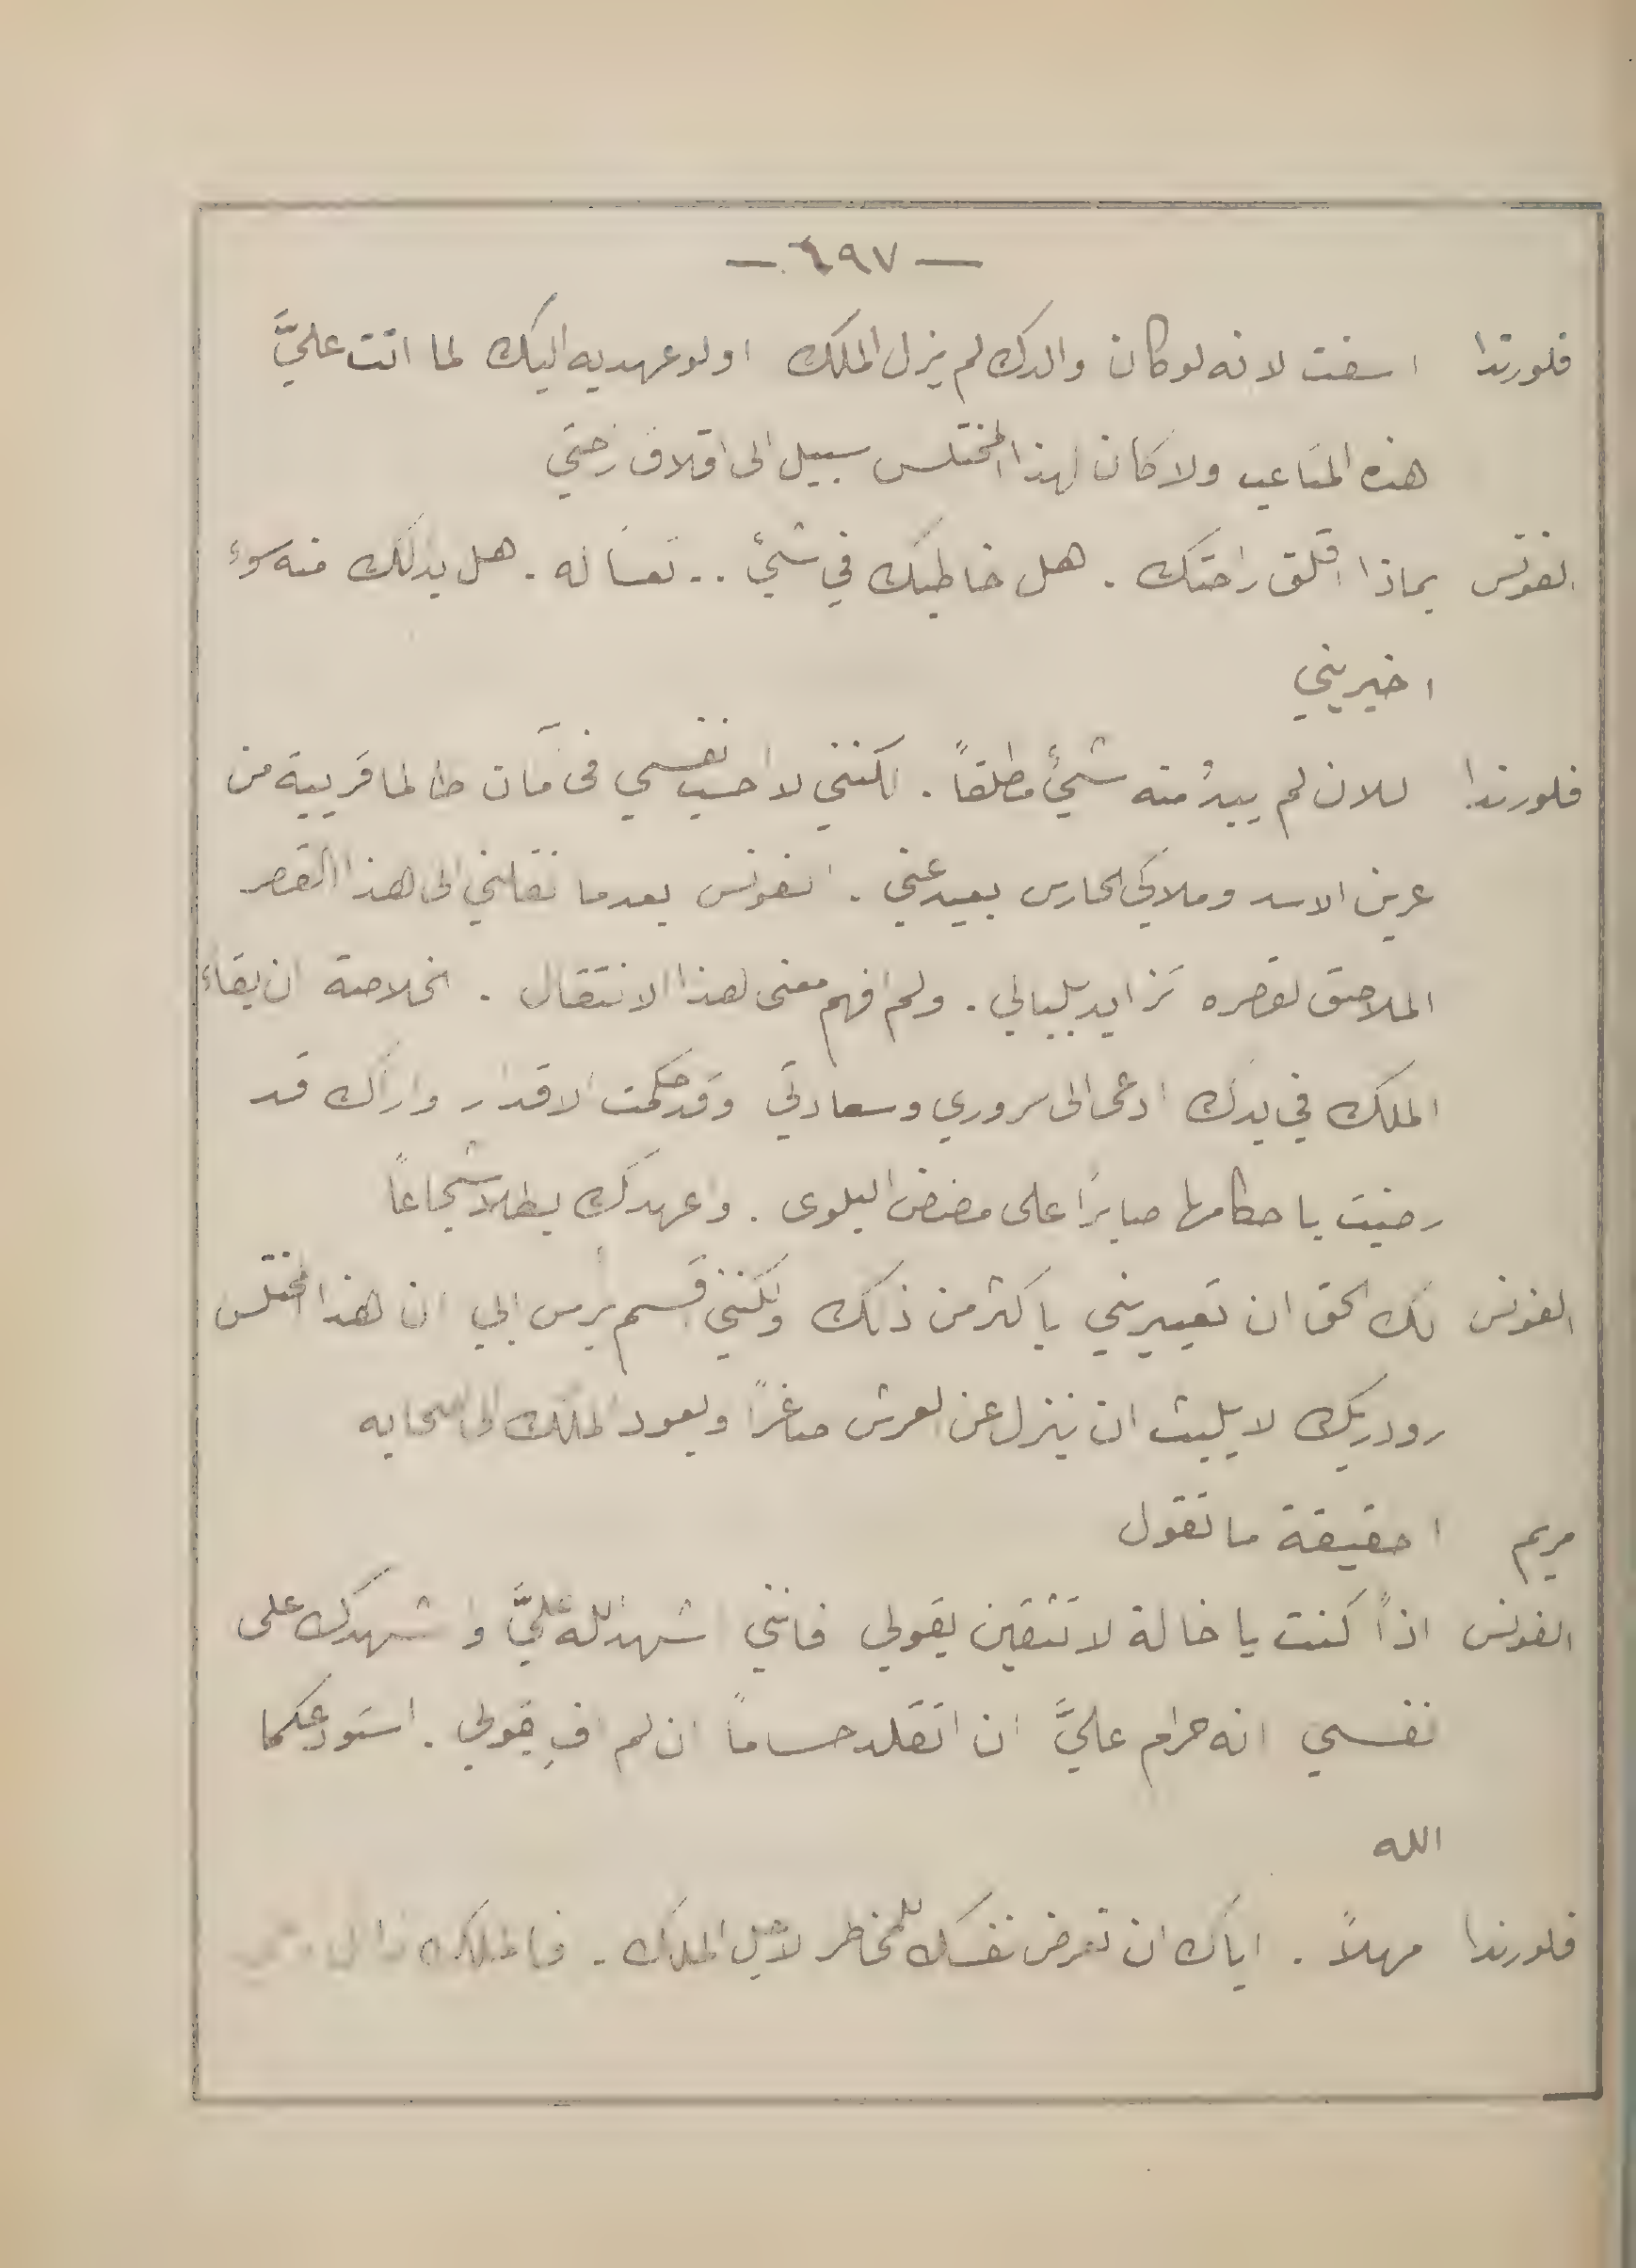 — ٦٩٧ —
فلورندا اسفت لانه لو كان والدك لم يزل الملك او لو عهد به اليك لما اتت عليَّ
هذه المتاعب ولا كان لهذا المختلس سبيل الى اقلاق راحتي
الفونس بماذا اقلق راحتك . هل خاطبك في شيءٍ .. تعساً له . هل بدا لك منه سوء
اخبريني
فلورندا للان لم يبدُ منه شيءٌ مطلقاً . لكنني لا احسب نفسي في مآن طالما قريبة من
عرين الاسد وملاكي الحارس بعيد عني . الفونس بعدما نقلني الى هذا القصر
الملاصق لقصره تزايد بلبالي . ولم افهم معنى لهذا الانتقال . الخلاصة ان بقاء
الملك في يدك ادعى الى سروري وسعادتي وقد حكمت الاقدار واراك قد
رضيت باحكامها صابرًا على مضض البلوى . واعهدك بطلا شجاعاً
الفونس لك الحق ان تعييريني باكثر من ذلك ولكنني اقسم براس ابي ان هذا المختلس
رودريك لا يلبث ان ينزل عن العرش صاغرًا ويعود الملك الى اصحابه
مريم احقيقة ما تقول
الفونس اذاً كنت يا خالة لا تثقين بقولي فانني اشهد الله عليَّ واشهدك على
نفسي انه حرام عليَّ ان اتقلد حساماً ان لم افِ بقولي . استودعكما
الله
فلورندا مهلاً . اياك ان تعرض نفسك للمخاطر لاجل الملك . فالملك